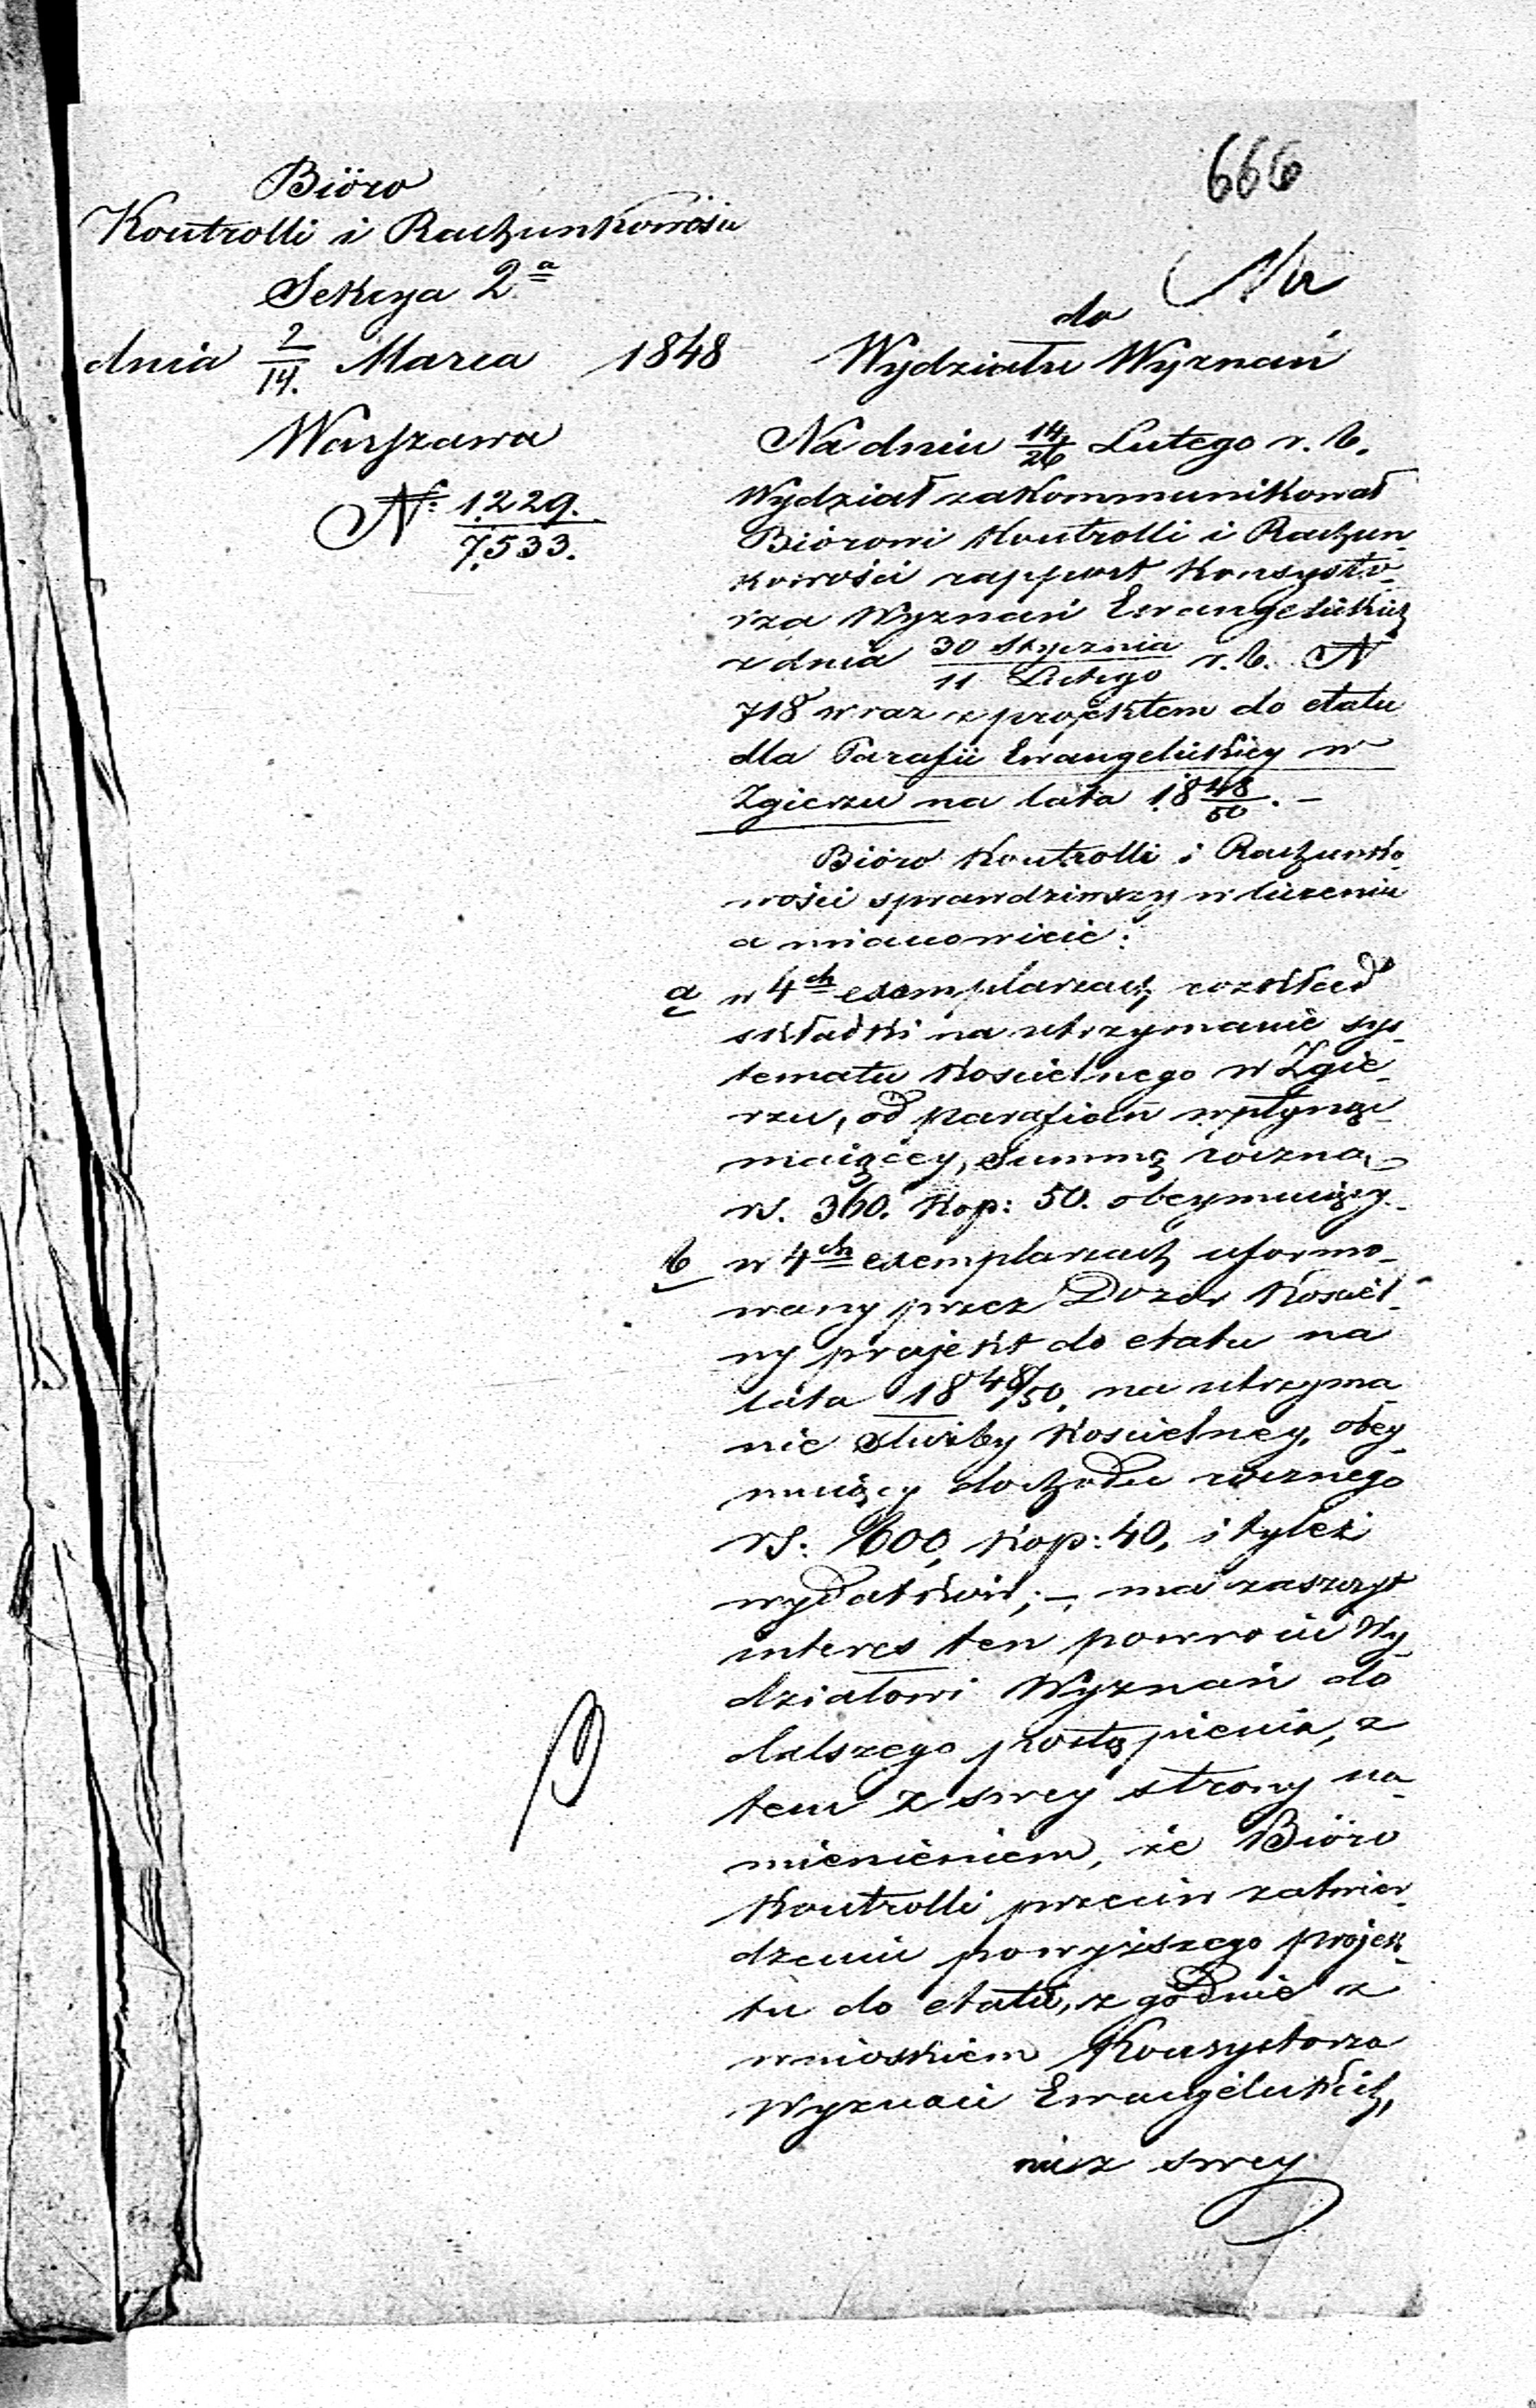 666
Biöro
Kontrolli i Rachunkowości
Sekcya 2ª
dnia 2/14. Marca 1848
Warszawa
N: 1,229. / 7,533.
do
Wydziału Wyznań
Na dniu 14/26 Lutego r. b.
Wydział zakommunikował
Biórowi Kontrolli i Rachun-
kowości rapport Konsysto-
rza Wyznań Ewangelickich
z dnia 30 Stycznia / 11 Lutego r. b. N
718 wraz z projektem do etatu
dla Parafii Ewangelickiey w
Zgierzu na lata 18 48/50. –
Bióro Kontrolli i Rachunko-
wości sprawdziwszy w liczeniu
a mianowicie:
a w 4ch exemplarzach rozkład
składki na utrzymanie sys-
tematu Kościelnego w Zgie-
rzu, od parafian wpłynąć
maiącéy, Summę roczną
rs. 360. Kop: 50. obeymuiący.
b w 4ch exemplarzach uformo-
wany przez Dozór Kościel-
ny projekt do etatu na
lata 18 48/50, na utrzyma-
nie służby Kościelney, obey-
muiący dochodu rocznego
rs: 600, Kop: 40, i tyleż
wydatków; –, ma zaszczyt
interes ten powrócić Wy-
działowi Wyznań do
dalszego postąpienia, z
tem z swey strony na-
mienieniem, że Bióro
Kontrolli przeciw zatwier-
dzeniu powyższego projek-
tu do etatu, zgodnie z
wnioskiem Konsystorza
Wyznań Ewangelickich,
nic z swey